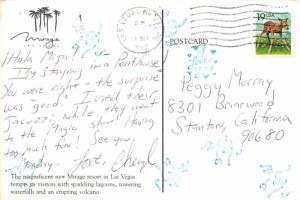 Mirage
LAS VEGAS NV
19 USA
POSTCARD
¡Hola Miga!
I'm staying in a Penthouse
You were right - the surprise
was "good". I used their
Jacuzzi while they went
to the Magic show! Having
too much fun! See you
Monday. Love, Cheryl
Peggy Murray
8301 Briarwood
Stanton, California
90680
The magnificent new Mirage resort in Las Vegas
tempts its visitors with sparkling lagoons, towering
waterfalls and an erupting volcano.